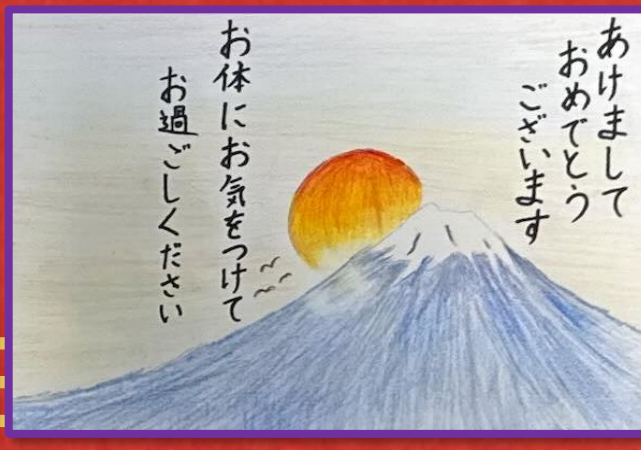 あけまして
おめでとう
ございます
お体にお気をつけて
お過ごしください